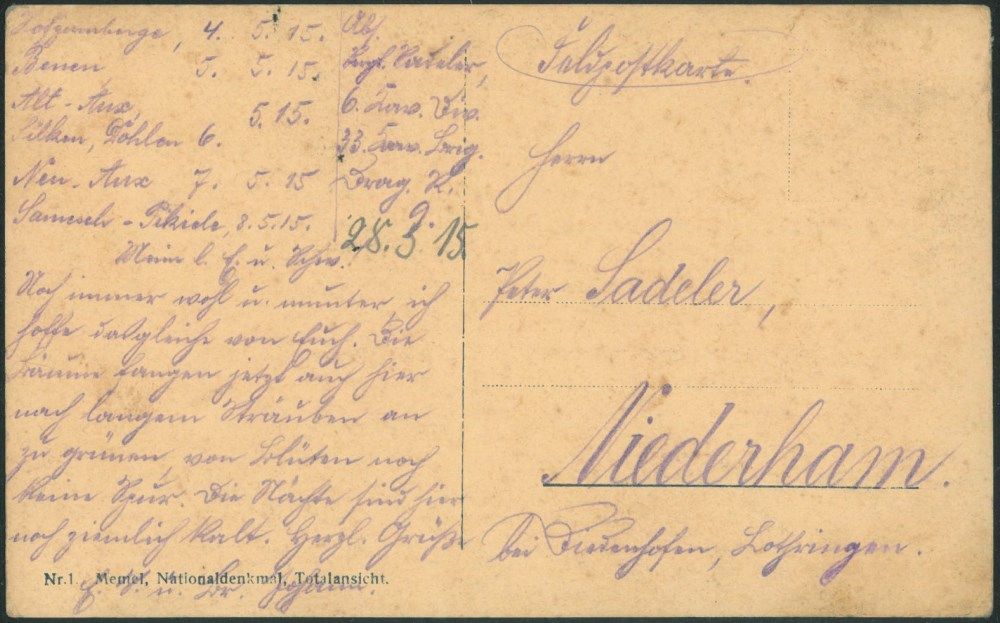 4. 5. 15.
Benen 5. 5. 15.
Alt-Aux 5.15.
Pilken, Döhlen 6.
Neu-Aux 7. 5. 15
Samesch-Pikiele, 8.5.15.
Abs.
Sadeler,
6. Kav. Div.
33. Kav. Brig.
Drag. R.
9.
28.5 15.
Mein l. E. u. Schw.
Noch immer wohl u. munter, ich
hoffe dasgleiche von Euch. Die
Bäume fangen jetzt auch hier
nach langem Sträuben an
zu grünen, von Blüten noch
keine Spur. Die Nächte sind hier
noch ziemlich kalt. Herzl. Grüße
E. S. u. Br. Johann.
Nr.1. Memel, Nationaldenkmal, Totalansicht.
Feldpostkarte.
Herrn
Peter Sadeler,
Niederham.
bei Diedenhofen, Lothringen.